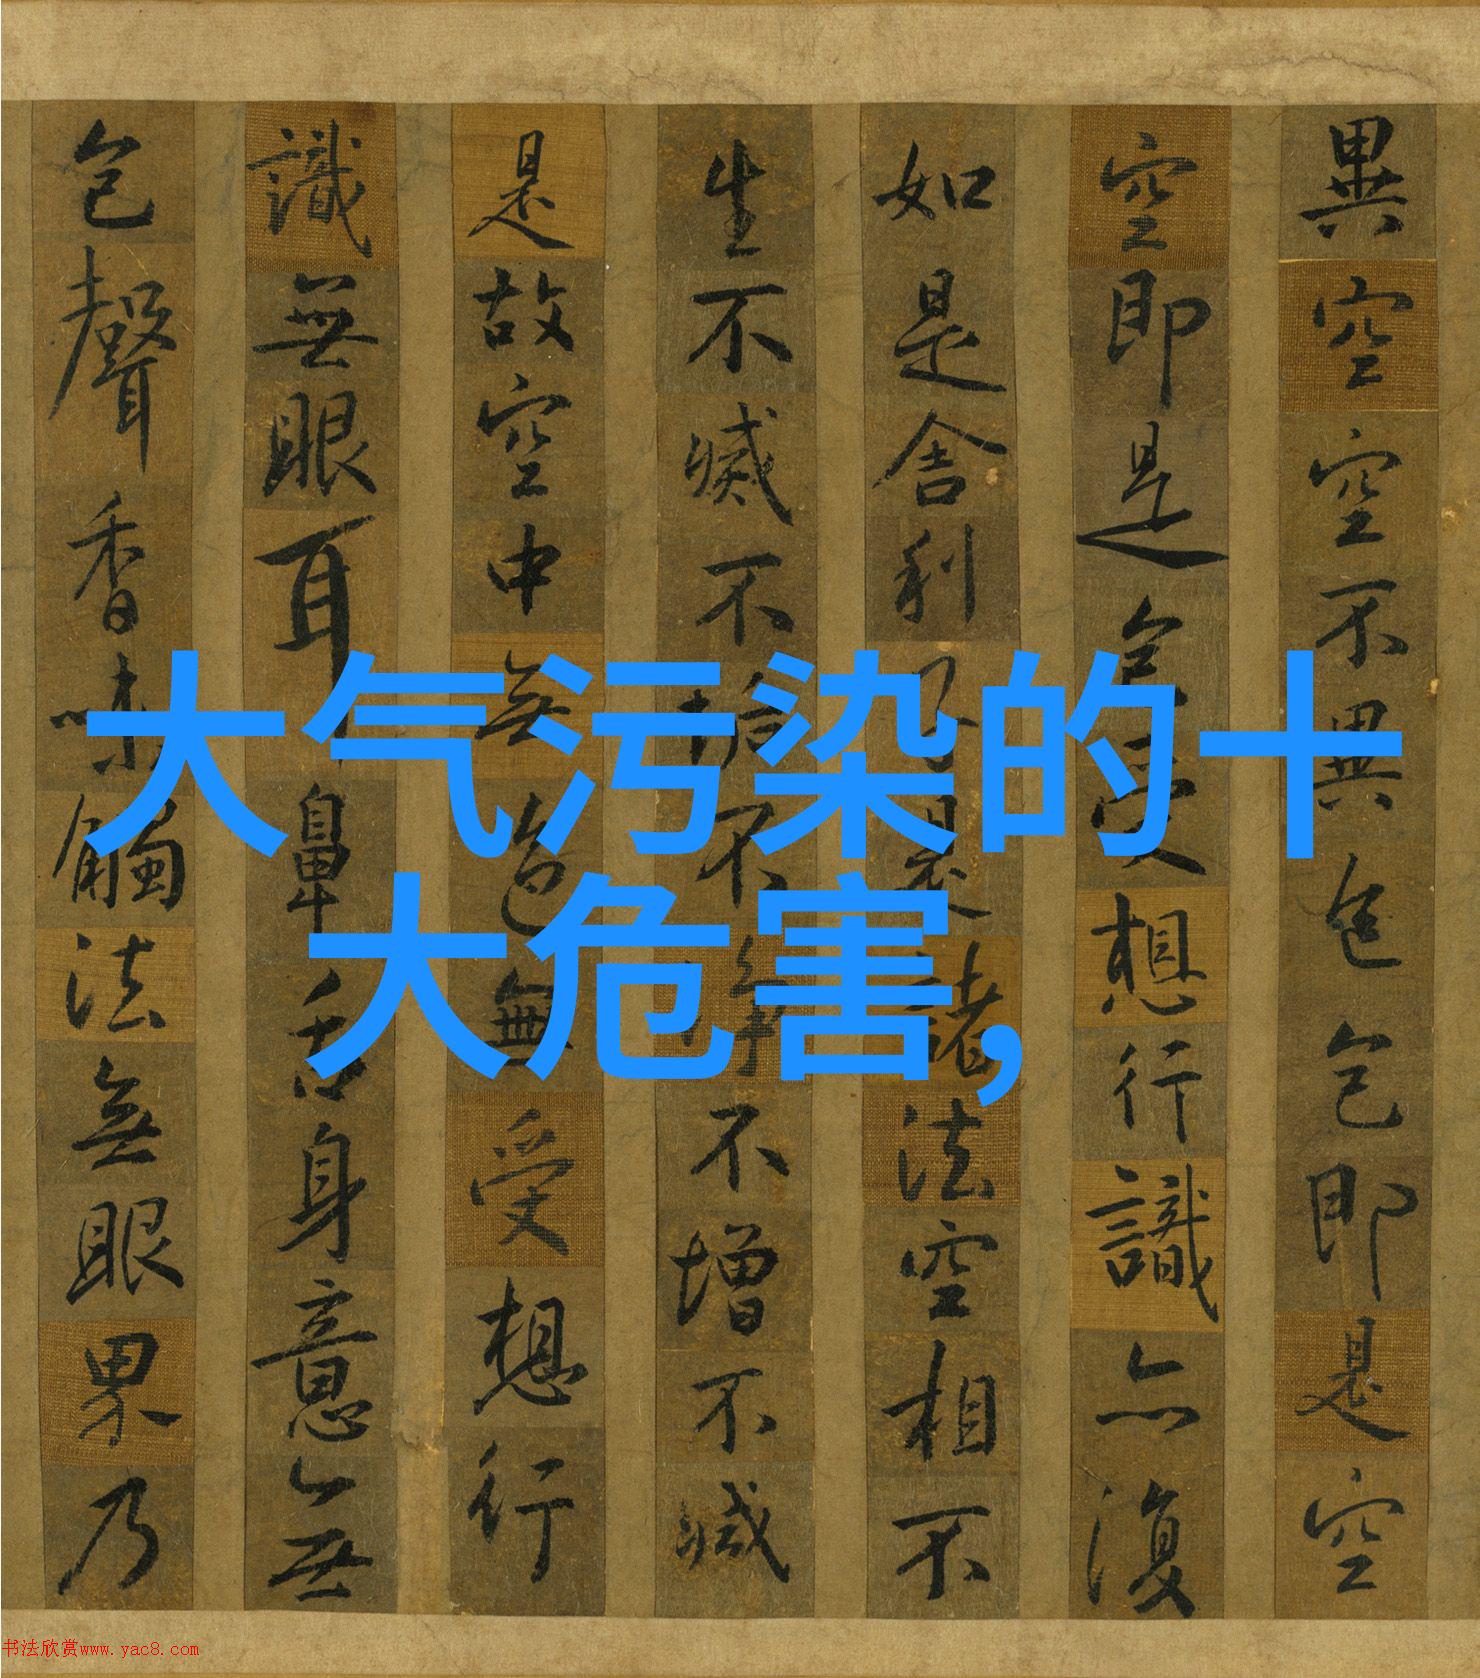 異空空不異色色即是空
空即是色受想行識亦復
如是舍利子是諸法空相不
生不滅不垢不淨不增不減
是故空中無色無受想行
識無眼耳鼻舌身意無
色聲香味觸法無眼界乃
大气污染的十
大危害,
书法欣赏www.yac8.com